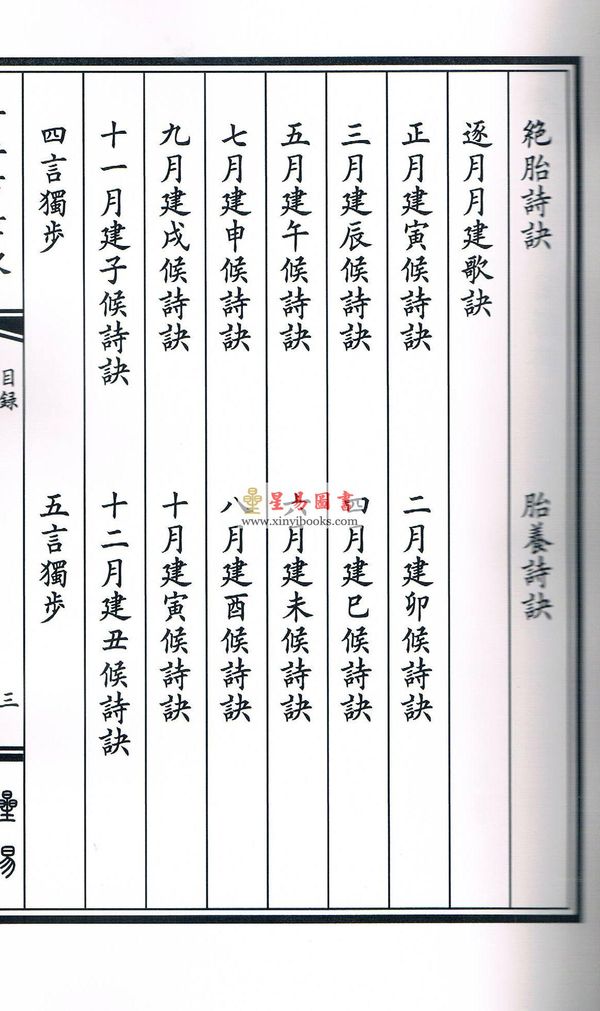 絕胎詩訣 胎養詩訣
逐月月建歌訣
正月建寅候詩訣 二月建卯候詩訣
三月建辰候詩訣 四月建巳候詩訣
五月建午候詩訣 六月建未候詩訣
七月建申候詩訣 八月建酉候詩訣
九月建戌候詩訣 十月建寅候詩訣
十一月建子候詩訣 十二月建丑候詩訣
四言獨步 五言獨步
目録
三
星易
星易圖書
www.xinyibooks.com